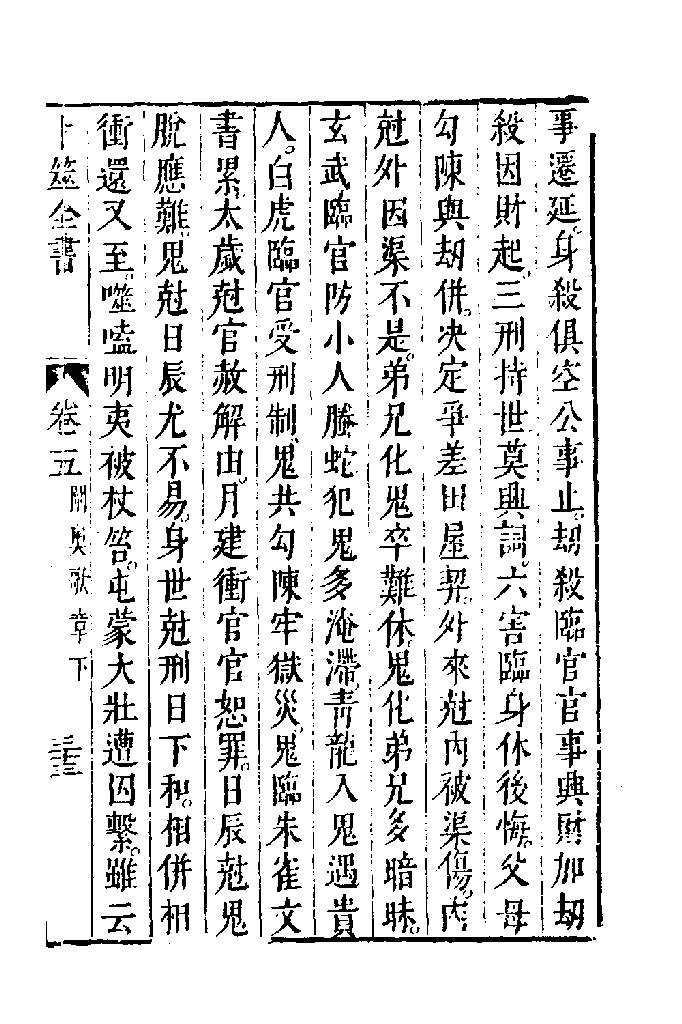 事遷延。身殺俱空公事止。劫殺臨官官事興財加劫
殺因財起。三刑持世莫興詞。六害臨身休後悔。父母
勾陳與劫併。决定爭差田屋契。外來尅內被渠傷。內
尅外因渠不是。弟兄化鬼卒難休。鬼化弟兄多暗昧。
玄武臨官防小人螣蛇犯鬼多淹滯。青龍入鬼遇貴
人。白虎臨官受刑制。鬼共勾陳牢獄災。鬼臨朱雀文
書累。太歲尅官赦解由。月建衝官官恕罪。日辰尅鬼
脫應難。鬼尅日辰尤不易。身世尅刑日下和。相併相
衝還又至。噬嗑明夷被杖笞。屯蒙大壯遭囚繫。雖云
卜筮全書
卷五
闡奧歌章下